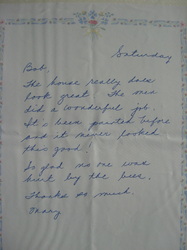 Saturday
Bob,
The house really does
look great. The men
did a wonderful job.
It's been painted before
and it never looked
this good!
So glad no one was
hurt by the bees.
Thanks so much.
Mary